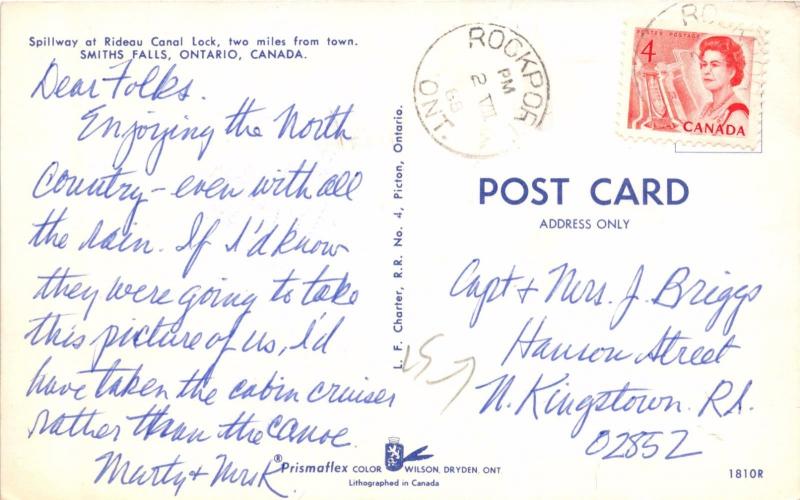 Spillway at Rideau Canal Lock, two miles from town.
SMITHS FALLS, ONTARIO, CANADA.
Dear Folks.
Enjoying the North
Country - even with all
the rain. If I'd know
they were going to take
this picture of us, I'd
have taken the cabin cruiser
rather than the canoe.
Marty + Mrs K
L. F. Charter, R.R. No. 4, Picton, Ontario.
ROCKPOR
PM
2 VII
68
ONT.
ROCK
POSTES POSTAGE
4
CANADA
POST CARD
ADDRESS ONLY
Capt + Mrs. J. Briggs
Hanson Street
N. Kingstown. R.I.
02852
15
®Prismaflex COLOR WILSON, DRYDEN, ONT.
Lithographed in Canada
1810R